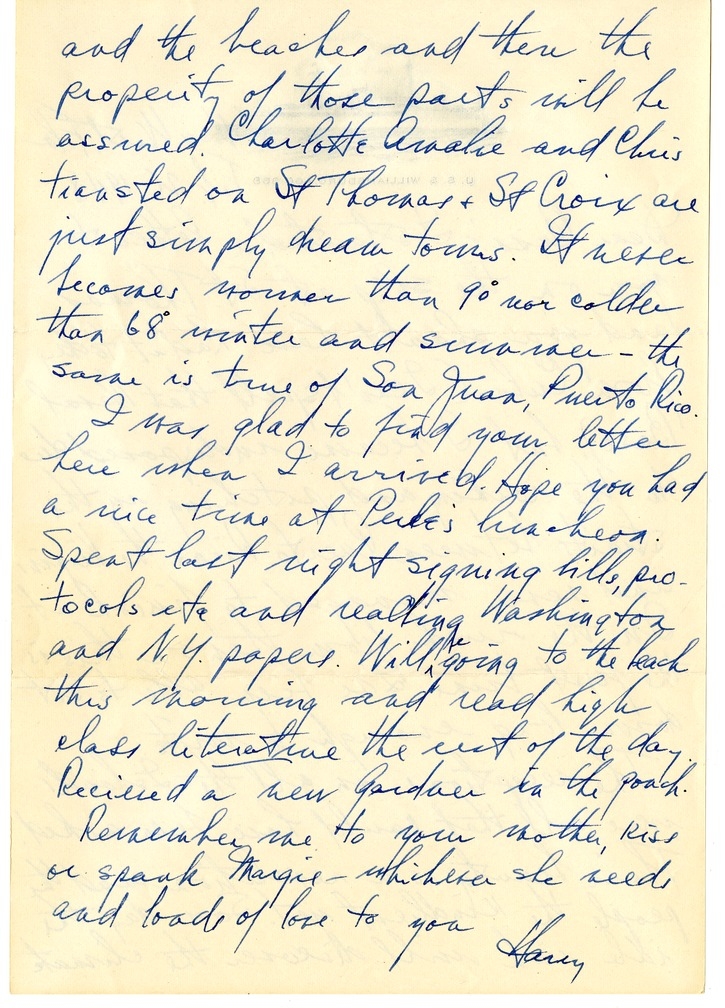 and the beaches and then the
properity of those parts will be
assured. Charlotte Amalie and Chris
tiansted on St Thomas & St Croix are
just simply dream towns. It never
becomes warmer than 90° nor colder
than 68° winter and summer - the
same is true of San Juan, Puerto Rico.
I was glad to find your letter
here when I arrived. Hope you had
a nice time at Perle's luncheon.
Spent last night signing bills, pro-
tocols etc and reading Washington
and N.Y. papers. Will be going to the beach
this morning and read high
class literature the rest of the day.
Recieved a new Gardner in the pouch.
Remember me to your mother, kiss
or spank Margie - whichever she needs
and loads of love to you
Harry